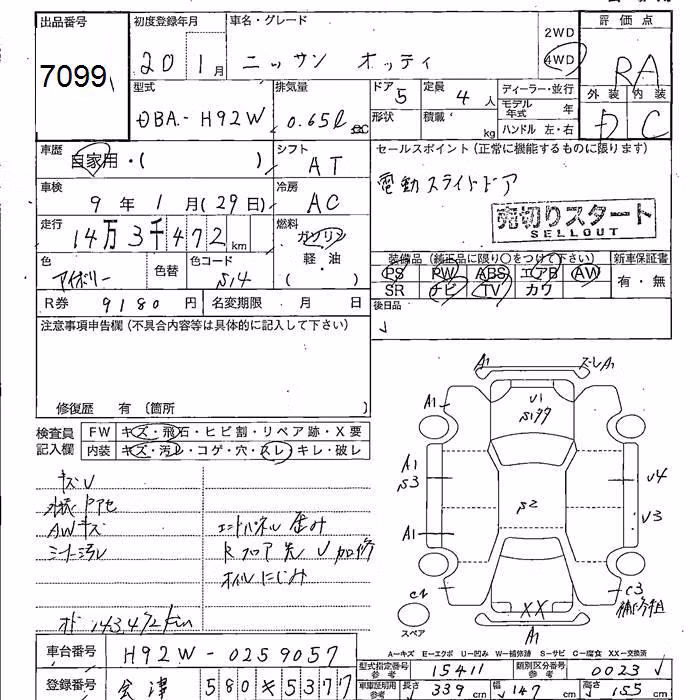 出品番号
7099
初度登録年月
20 1月
車名・グレード
ニッサン オッティ
2WD
4WD
評価点
RA
外装 内装
D C
型式
DBA- H92W
排気量
0.65ℓ
ドア 5
形状
定員 4人
積載 kg
ディーラー・並行
モデル年式 年
ハンドル 左・右
車歴
自家用・( )
シフト
AT
セールスポイント(正常に機能するものに限ります)
電動スライドドア
売切りスタート
SELLOUT
車検
9年 1月(29日)
冷房
AC
走行
14万3千472km
燃料
ガソリン
軽・油
( )
色
アイボリー
色替
色コード
S14
装備品(純正品に限り○をつけて下さい)
PS PW ABS エアB AW
SR ナビ TV カワ
新車保証書
有・無
R券 9180円
名変期限 月 日
後日品
注意事項申告欄(不具合内容等は具体的に記入して下さい)
修復歴 有〔箇所 〕
検査員記入欄
FW キズ・飛石・ヒビ割・リペア跡・X要
内装 キズ・汚レ・コゲ・穴・スレ・キレ・破レ
キズU
AWキズ
シート汚レ
エンドパネル歪み
Rフロア先U加修
オイルにじみ
143,472km
A1
ズレA1
A1
U1
S199
A1
S3
A1
S2
U4
U3
C1
C3
補修粗
XX
A1
スペア
A-キズ E-エクボ U-凹み W-補修跡 S-サビ C-腐食 XX-交換済
車台番号 H92W-0259057
登録番号 会津 580 き 5377
型式指定番号 参考 15411
類別区分番号 参考 0023
車庫証明用 参考 長さ 339cm 幅 147cm 高さ 155cm